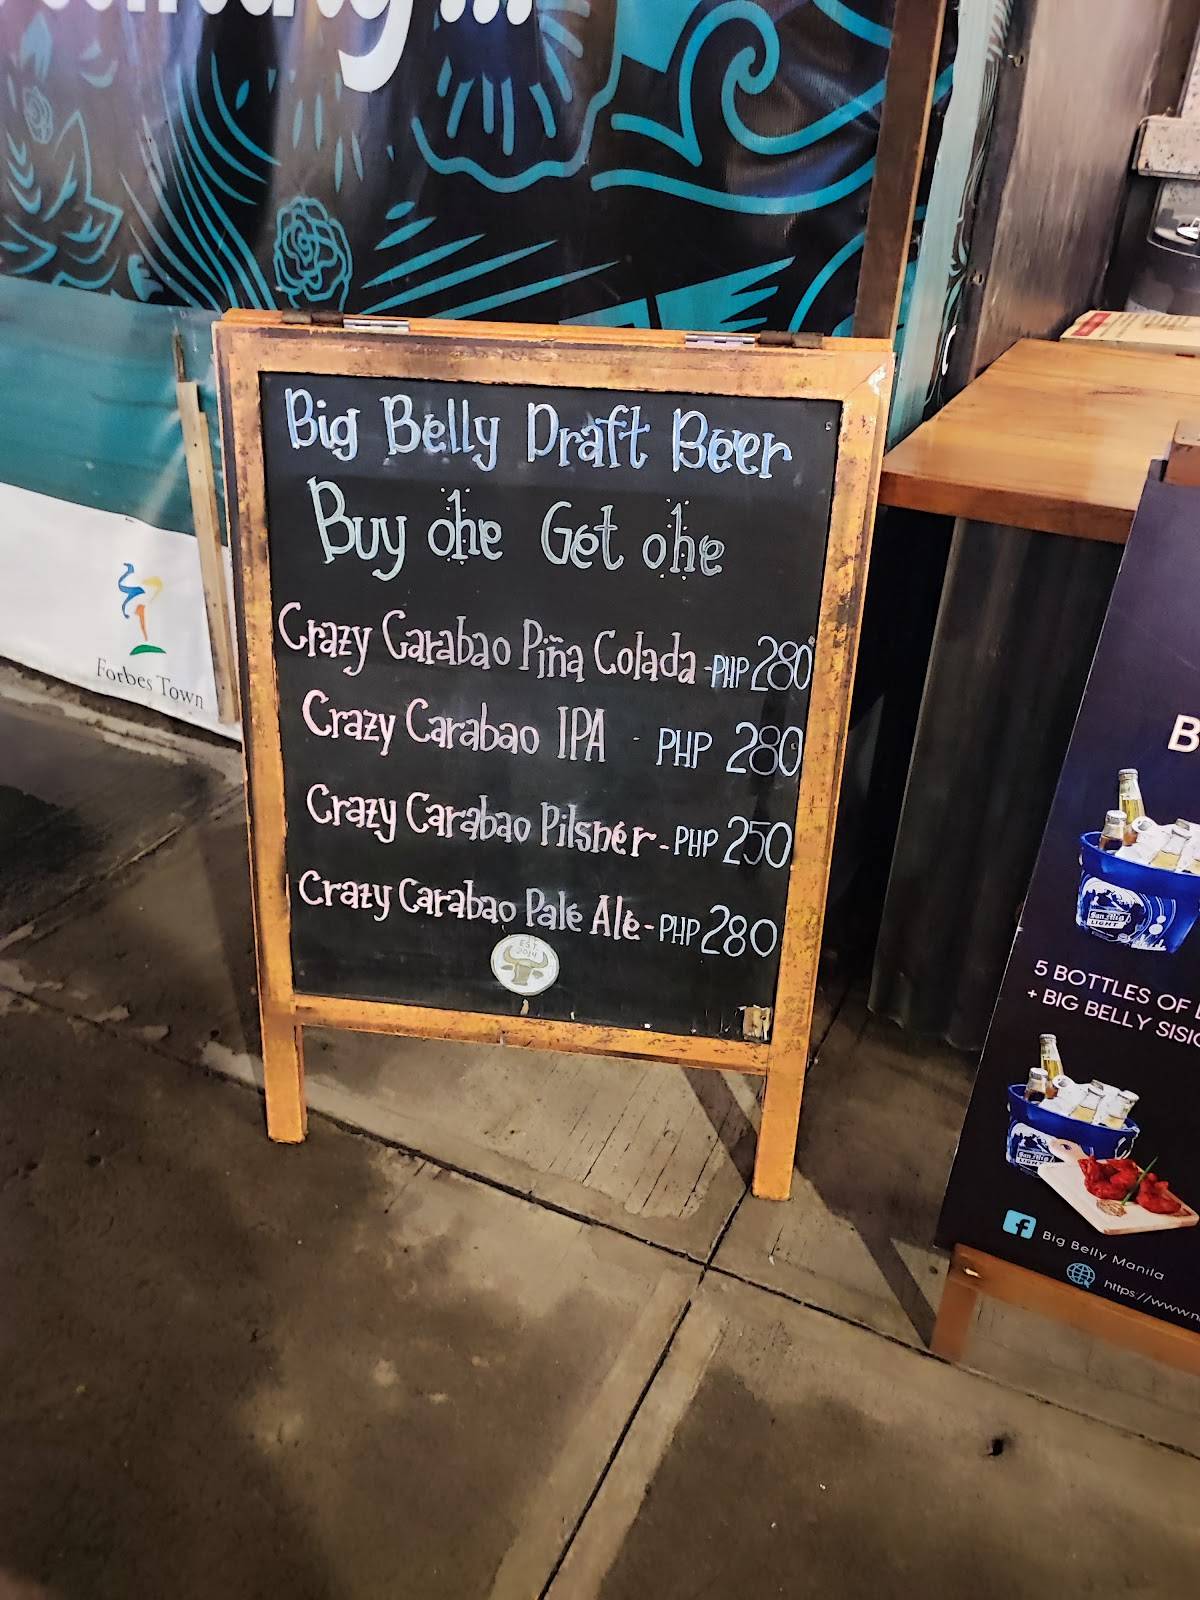 Big Belly Draft Beer
Buy one Get one
Crazy Carabao Piña Colada - PHP 280
Crazy Carabao IPA - PHP 280
Crazy Carabao Pilsner - PHP 250
Crazy Carabao Pale Ale - PHP 280
EST.
2014
Forbes Town
B
San Mig
LIGHT
5 BOTTLES OF
+ BIG BELLY SISI
San Mig
LIGHT
Big Belly Manila
https://www.